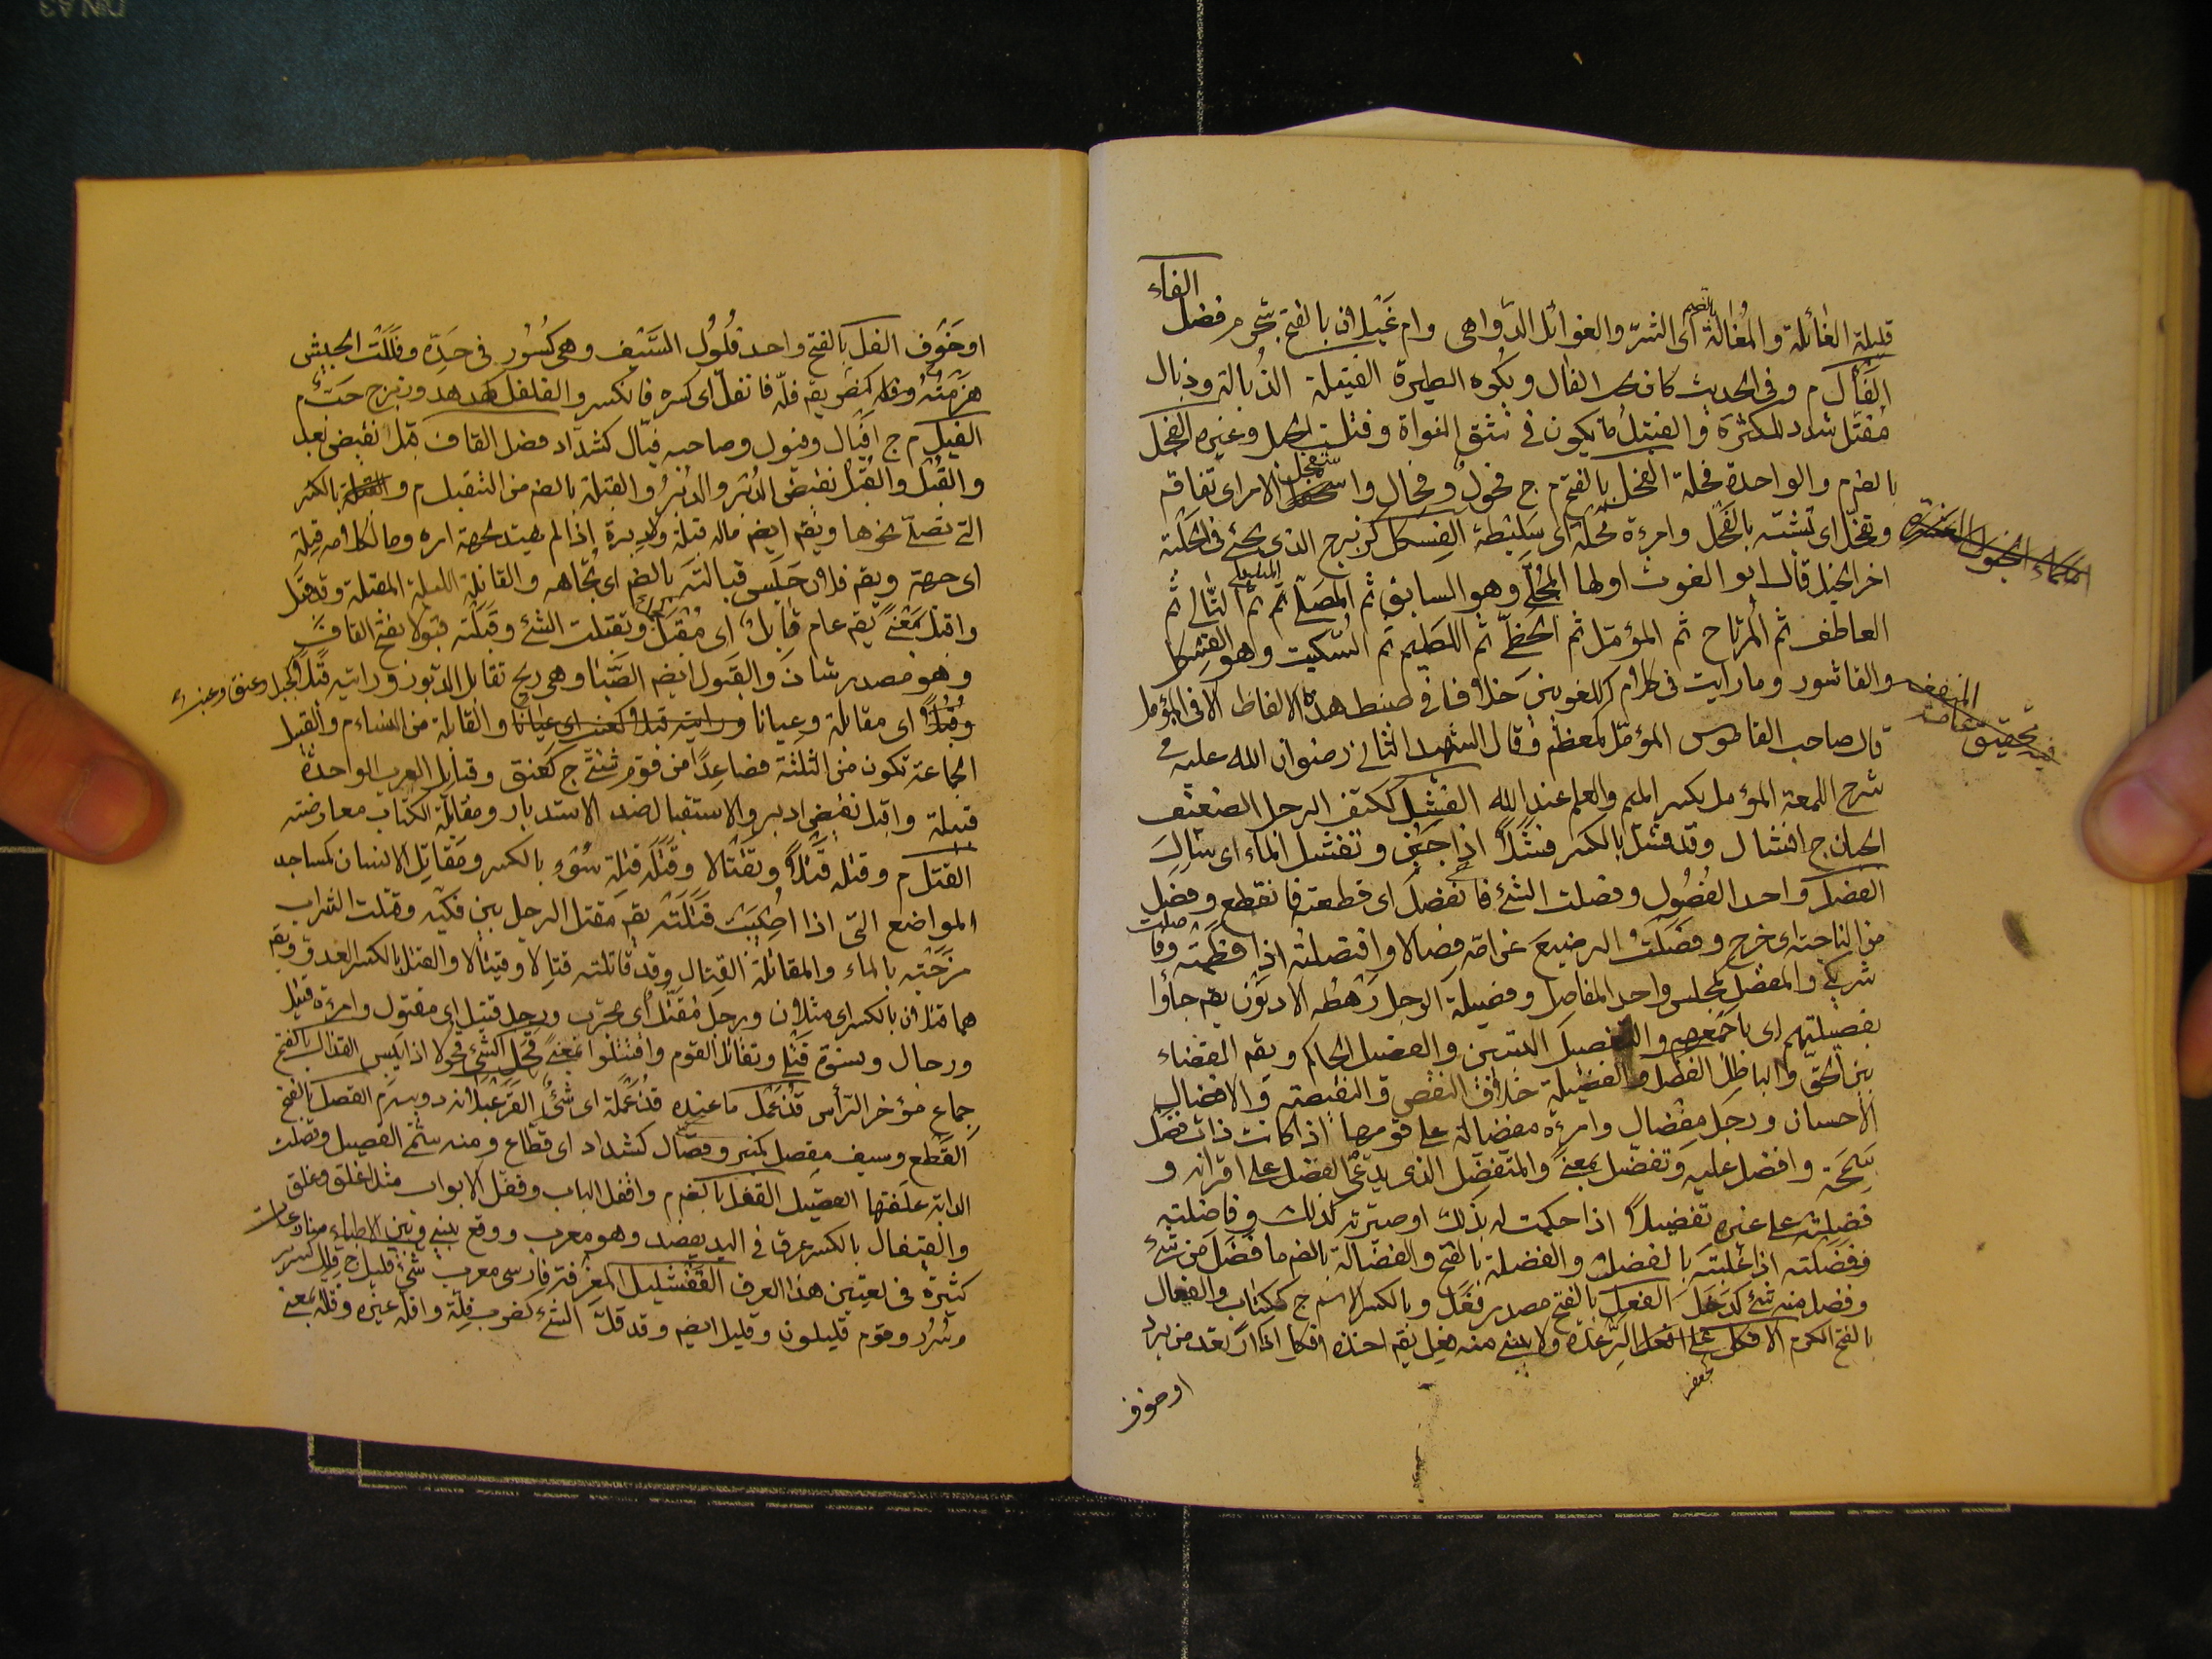 الفاء
قليلة الغائلة والمُغالة بالضم اى الشرّ والغوائل الدّواهى وام غَيْلان بالفتح شجر م فصل
الفَأل م وفى الحديث كان الفال ويكره الطيرة الفتيلة الذُبالة وذبال
مُفَتَّل شدد للكثرة والفتيل ما يكون فى شق النواة وفتلت الحبل وغيره الفحل
بالضم م والواحدة فحلة الفحل بالفتح م ج فحول وفحال واستفحل الامر اى تفاقم
وتفحّل اى تشبّه بالفحل وامرءة فحلة اى سَليطة الفِسكل كزبرج الذى يجئ فى الحَلْبَة
اخر الخيل قال ابو الغوث اولها المُجلّى وهو السابق ثم المصَلّى ثم المسلى ثم التّالى ثم
العاطف ثم المرتاح ثم المؤمّل ثم الحظّى ثم اللّطيم ثم السُكيت وهو الفِسكل
والقاشور وما رايت فى كلام اللغويين خلافا فى ضبط هذه الالفاظ الا فى المؤمل
قال صاحب القاموس المؤمّل كمعظم وقال الشهيد الثانى رضوان الله عليه فى
شرح اللمعة المؤمل بكسر الميم والعلم عند الله الفَشِل ككتف الرجل الضعيف
الجبان ج افشال وقد فشل بالكسر فشلًا اذا جبن وتفشل الماء اى سال
الفصل واحد الفُصُول وفصلت الشئ فانفصل اى قطعته فانقطع وفصل
من الناحية اى خرج وفصَلتُ الرضيع عن امّه فصالا وافتصلته اذا فطمته وفاصلت
شريكى والمفصل كمجلس واحد المفاصل وفصيلة الرجل رَهطه الادنَون يقم جاؤا
بفصيلتهم اى باجمعهم والتفصيل التبيين والفيصل الحاكم ويقم القضاء
بين الحقّ والباطل الفضل والفضيلة خلاف النقص والنقيصة والافضال
الاحسان ورجل مِفْضال وامرءة مفضالة على قومها اذا كانت ذات فضل
سَمِحَة وافضل عليه وتفضّل بمعنًى والمتفضّل الذى يدّعى الفضل على اقرانه و
فضّلته على غيره تفضيلًا اذا حكمت له بذلك او صيّرته كذلك وفاضلته
ففضلته اذا غلبته بالفضل والفضلة بالفتح والفضالة بالضم ما فضل من شئ
وفضل منه شئ كدخل الفعل بالفتح مصدر فعَل وبالكسر الاسم ج ككتاب والفَعال
بالفتح الكرم الافكل على افعل الرِّعدة ولا يبنى منه فعل يقم اخذه افكل اذا ارتعد من برد
كجعفر
او خوف
تحقيق
او خَوف الفَل بالفتح واحد فُلُول السَّيف وهى كُسُور فى حدّه وفَللت الجيش
هزمته وفله كمضر يقم فلّه فانفلّ اى كسره فانكسر والفلفل كهدهد وزبرج حَبّ م
الفيل م ج افيال وفيول وصاحبه فيّال كشداد فصل القاف قبل نقيض بعد
والقُبْل والقُبُل نقيض الدُبْر والدُبُر والقبلة بالضم من التقبيل م والقبلة بالكسر
التى تصلّى نحوها ويقم ايضم ماله قبلة ولا دبرة اذا لم يهتد لجهة امره وما لكلامه قبلة
اى جهة ويقم فلان جَلَس قبالته بالضم اى تجاهه والقابلة الليلة المقبلة وقد قبَل
واقبل بمعنًى يقم عام قابل اى مُقبل وتقبلت الشئ وقَبلته قبولا بفتح القاف
وهو مصدر شاذّ والقَبول ايضم الصَّبا وهى ريح تقابل الدبور ورايته قبلًا كجبل وعنق وعنب
وقُبُلًا اى مقابلة وعيانا ورايته قبلا كعنب اى عيانا والقابلة من النساء م والقبيل
الجماعة تكون من الثلثة فصاعدًا من قوم شتّى ج كعنق وقبايل العرب الواحدة
قبيلة واقبل نقيض ادبر والاستقبال ضد الاستدبار ومقابلة الكتاب معارضته
القتل م وقتله قَتْلًا وتقتالا وقَتَله قِتلة سُوء بالكسر ومَقاتِل الانسان كمساجد
المواضع التى اذا اصيبت قَتَلته يقم مقتل الرجل بين فكّيه وقتلت الشراب
مزجته بالماء والمقاتلة القتال وقد قاتلته قتالا وقيتالا والقتل بالكسر العدو ويقم
هما قتلان بالكسر اى مثلان ورجل مُقَتَّل اى مجرّب ورجل قتيل اى مقتول وامرءة قتيل
ورجال ونسوة قَتلى وتقاتل القوم واقتتلوا بمعنًى قحل الشئ قحولا اذا يبس القذال بالفتح
جماع مؤخر الرأس قذعمل ما عنده قذعملة اى شئ القصل بالفتح
القَطع وسيف مقصل كمنبر وقصّال كشداد اى قطّاع ومنه سمّى القصيل وقصلت
الدابة علفتها القصيل القفل بالضم م واقفل الباب وقفل الابواب مثل اغلق وغلق
والقيفال بالكسر عرق فى اليد يفصد وهو معرب ووقع بينى وبين الاطباء منازعات
كثيرة فى تعيين هذا العرق القفشليل المغرفة فارسى معرب شئ قليل ج قُلُل كسرير
وسُرُر وقوم قليلون وقليل ايضم وقد قلّ الشئ كضرب قِلّة واقله غيره وقلّله بمعنى